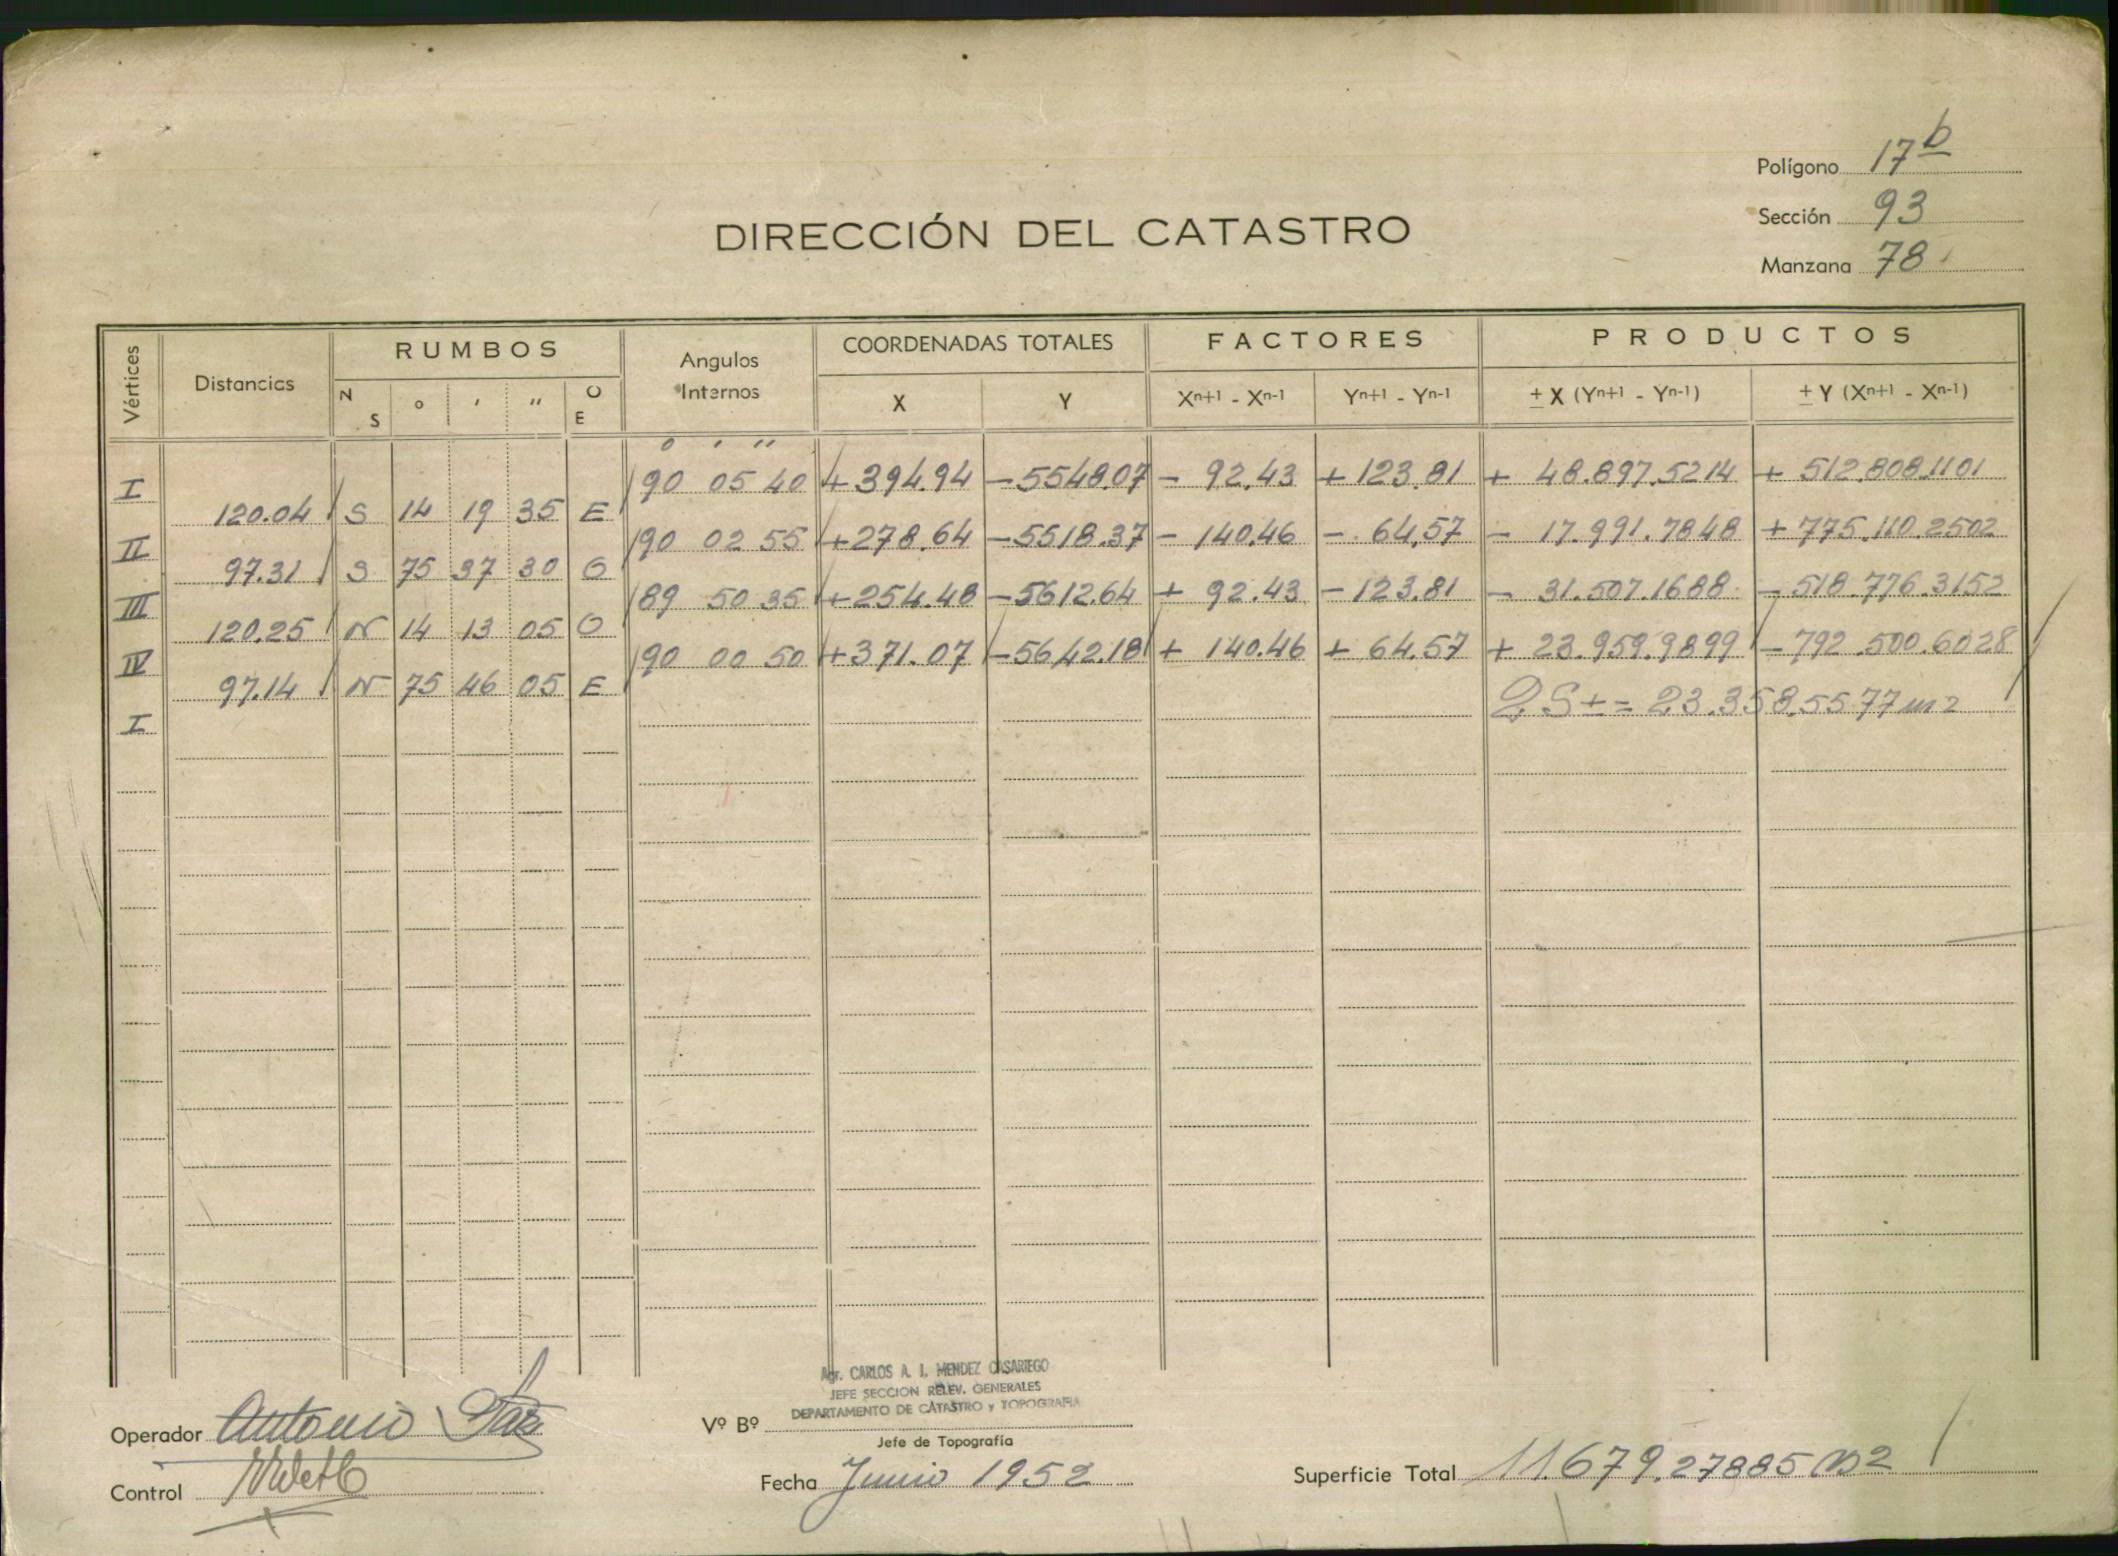 Polígono 17 b
Sección 93
Manzana 78
DIRECCIÓN DEL CATASTRO
Vértices Distancias RUMBOS Angulos Internos COORDENADAS TOTALES FACTORES PRODUCTOS
N S ° ' " O E X Y Xn+1 - Xn-1 Yn+1 - Yn-1 ± X (Yn+1 - Yn-1) ± Y (Xn+1 - Xn-1)
° ' "
I 90 05 40 +394.94 -5548.07 - 92.43 +123.81 + 48.897.5214 + 512.808.1101
120.04 S 14 19 35 E
II 90 02 55 +278.64 -5518.37 - 140.46 - 64.57 - 17.991.7848 +775.110.2502
97.31 S 75 37 30 O
III 89 50 35 +254.48 -5612.64 + 92.43 -123.81 - 31.507.1688 -518.776.3152
120.25 N 14 13 05 O
IV 90 00 50 +371.07 -5642.18 + 140.46 + 64.57 + 23.959.9899 -792.500.6028
97.14 N 75 46 05 E
I 2S± = 23.358.5577 m2
Agr. CARLOS A. I. MENDEZ CASARIEGO
JEFE SECCION RELEV. GENERALES
DEPARTAMENTO DE CATASTRO y TOPOGRAFIA
Operador Antonio
Vº Bº
Jefe de Topografía
Control
Fecha Junio 1952
Superficie Total 11.679.27885 m2